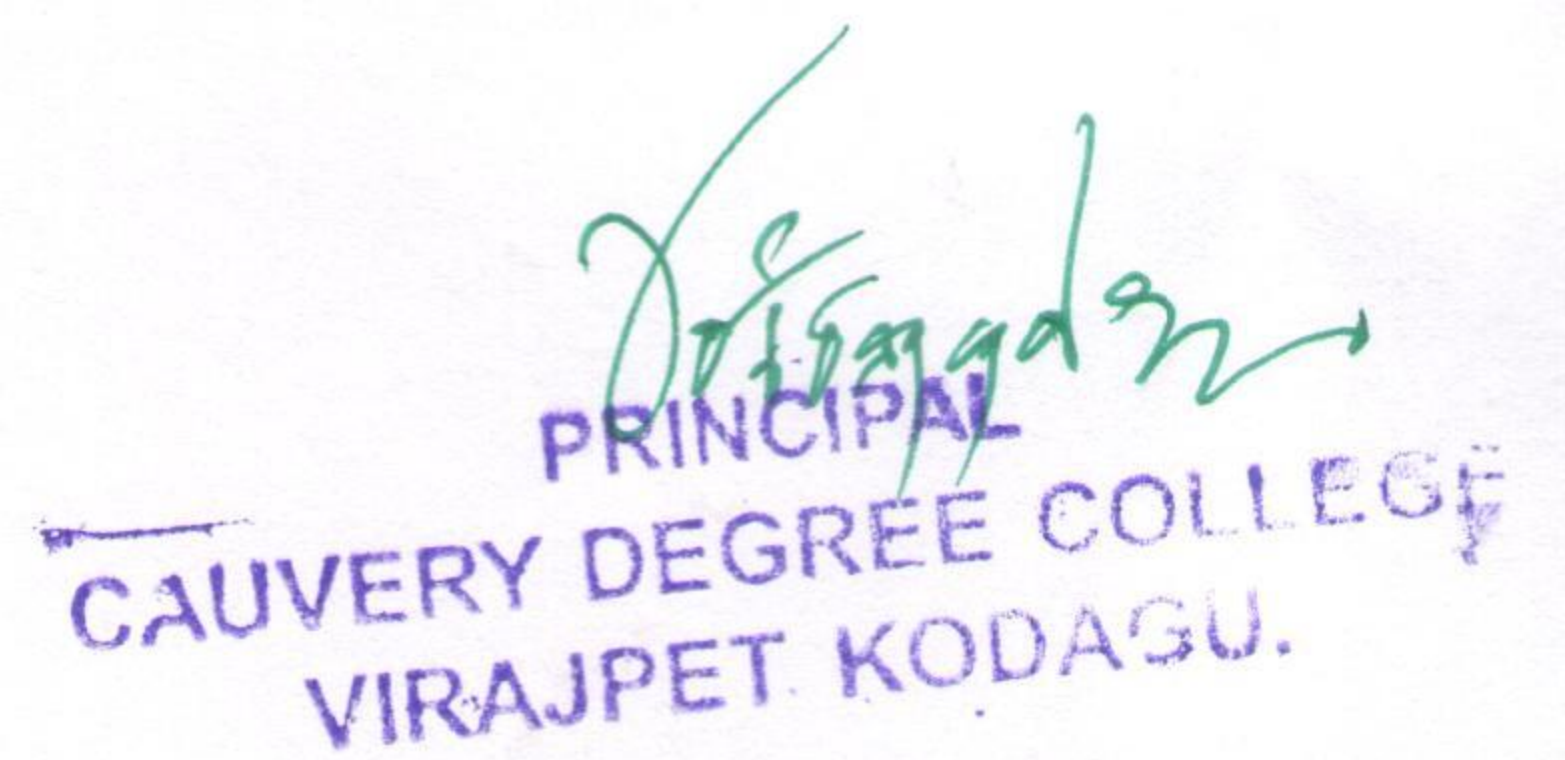 PRINCIPAL
CAUVERY DEGREE COLLEGE
VIRAJPET KODAGU.